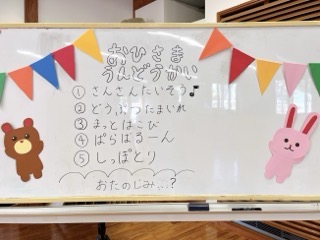 おひさま
うんどうかい
① さんさんたいそう♪
② どうぶつたまいれ
③ まっとはこび
④ ぱらばるーん
⑤ しっぽとり
おたのしみ…?